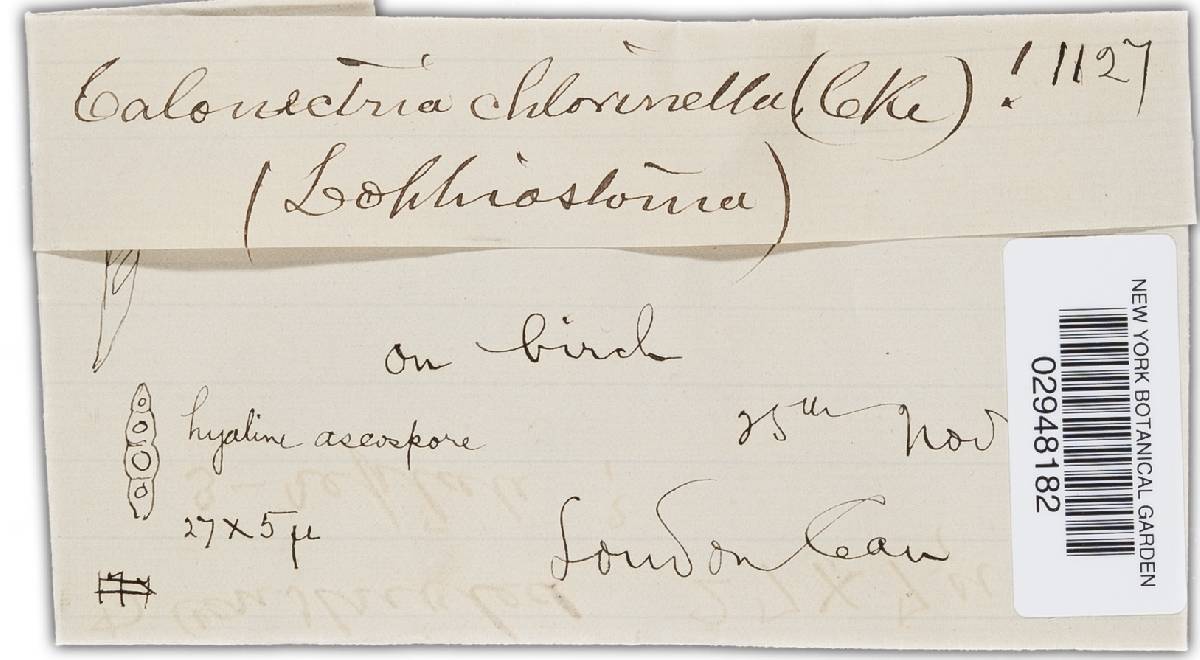 Calonectria chlorinella (Cke) ! 1127
(Lophiostoma)
on birch
hyaline ascospore
25th Nov
27 x 5 µ
London Can
NEW YORK BOTANICAL GARDEN
02948182